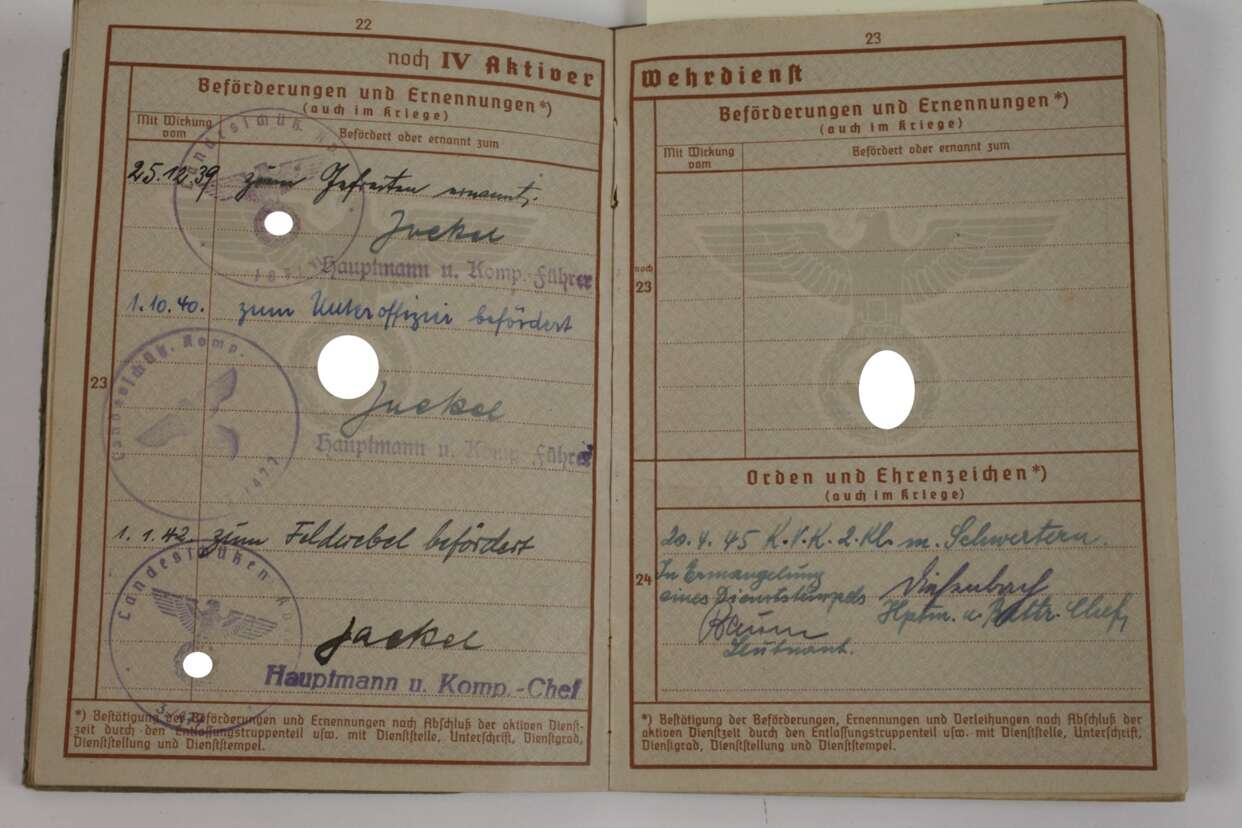 22
noch IV Aktiver
Beförderungen und Ernennungen*)
(auch im Kriege)
Mit Wirkung vom
Befördert oder ernannt zum
25.12.39 zum Gefreiten ernannt.
Jaekel
Hauptmann u. Komp.-Führer
1.10.40. zum Unteroffizier befördert
23
Landesschütz. Komp.
Jaekel
Hauptmann u. Komp.-Führer
1.1.42. zum Feldwebel befördert
Landesschützen
Jaekel
Hauptmann u. Komp.-Chef
*) Bestätigung der Beförderungen und Ernennungen nach Abschluß der aktiven Dienst-
zeit durch den Entlassungstruppenteil usw. mit Dienststelle, Unterschrift, Dienstgrad,
Dienststellung und Dienststempel.
23
Wehrdienst
Beförderungen und Ernennungen*)
(auch im Kriege)
Mit Wirkung vom
Befördert oder ernannt zum
noch
23
Orden und Ehrenzeichen*)
(auch im Kriege)
20.4.45 K.V.K. 2.Kl. m. Schwertern.
24
In Ermangelung
eines Dienststempels
Hptm. u. Battr. Chef
Leutnant.
*) Bestätigung der Beförderungen, Ernennungen und Verleihungen nach Abschluß der
aktiven Dienstzeit durch den Entlassungstruppenteil usw. mit Dienststelle, Unterschrift,
Dienstgrad, Dienststellung und Dienststempel.